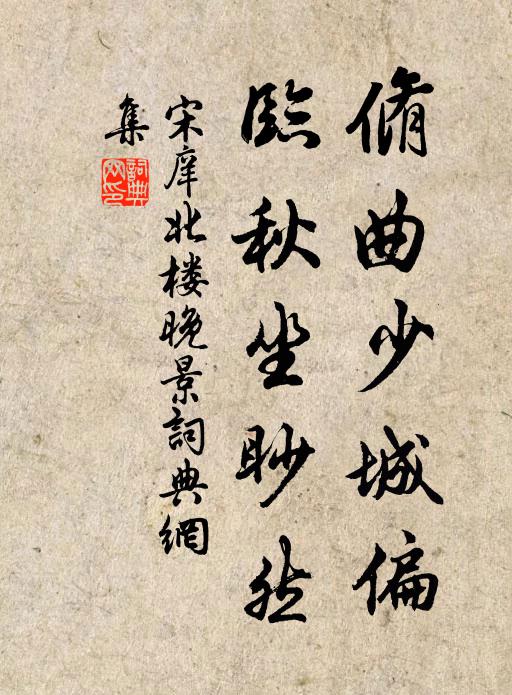 脩曲少城偏
臨秋坐眇然
宋庠北楼晚景詞典網
集
詞典網印